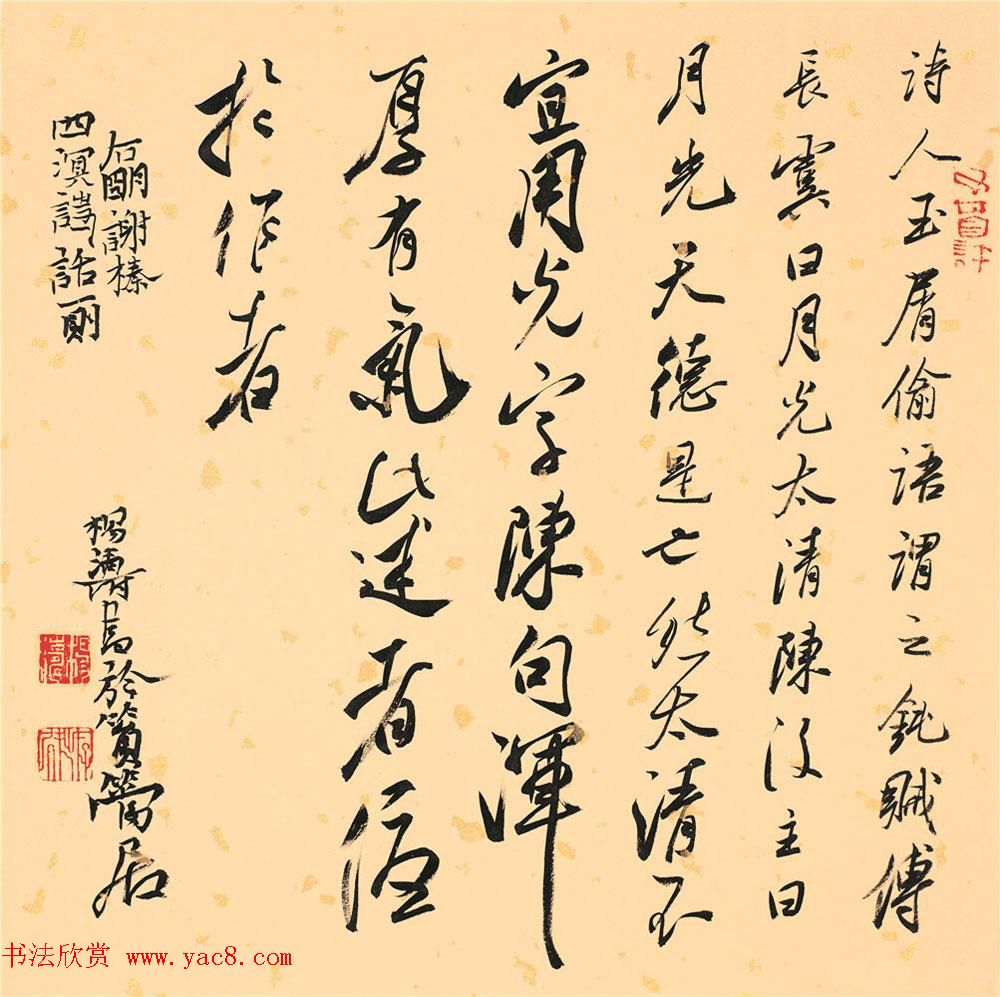 詩人玉屑偷語謂之鈍賊傅
長虞日月光太清陳後主日
月光天德是也然太清不
宜用光字陳句渾
厚有氣此述者優
於作者
右明謝榛
四溟詩話一則
楊濤書於篔簹居
楊濤
书法欣赏 www.yac8.com